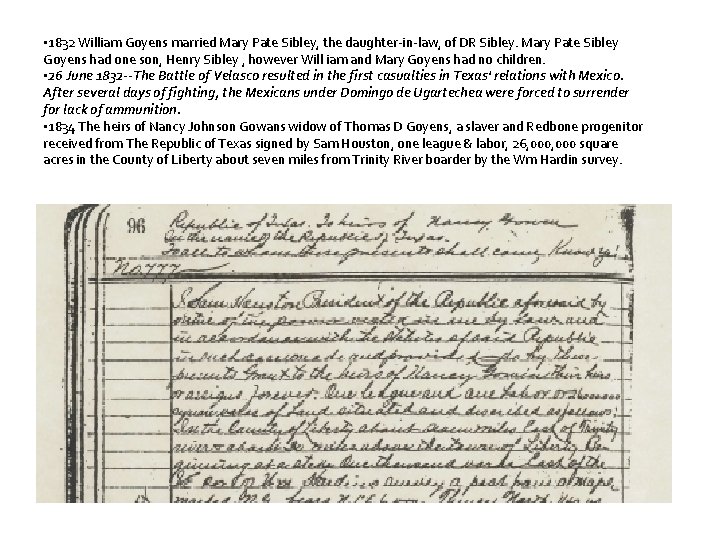 • 1832 William Goyens married Mary Pate Sibley, the daughter-in-law, of DR Sibley. Mary Pate Sibley
Goyens had one son, Henry Sibley , however Will iam and Mary Goyens had no children.
• 26 June 1832--The Battle of Velasco resulted in the first casualties in Texas' relations with Mexico.
After several days of fighting, the Mexicans under Domingo de Ugartechea were forced to surrender
for lack of ammunition.
• 1834 The heirs of Nancy Johnson Gowans widow of Thomas D Goyens, a slaver and Redbone progenitor
received from The Republic of Texas signed by Sam Houston, one league & labor, 26,000,000 square
acres in the County of Liberty about seven miles from Trinity River boarder by the Wm Hardin survey.
96 Republic of Texas. To heirs of Nancy Gowen
In the name of the Republic of Texas.
To all to whom these presents shall come Know ye!
No 777
I Sam Houston President of the Republic aforesaid by
virtue of the power vested in me by law and
in accordance with the Statutes of said Republic
in such case made and provided do by these
presents Grant to the heirs of Nancy their heirs
or assigns forever. One league and one labor
of Land situated and described as follows:
In the County of Liberty about seven miles East of Trinity
river about miles above the town of Liberty Be-
ginning at a stake One thousand varas East of the
Wm Hardin survey a post